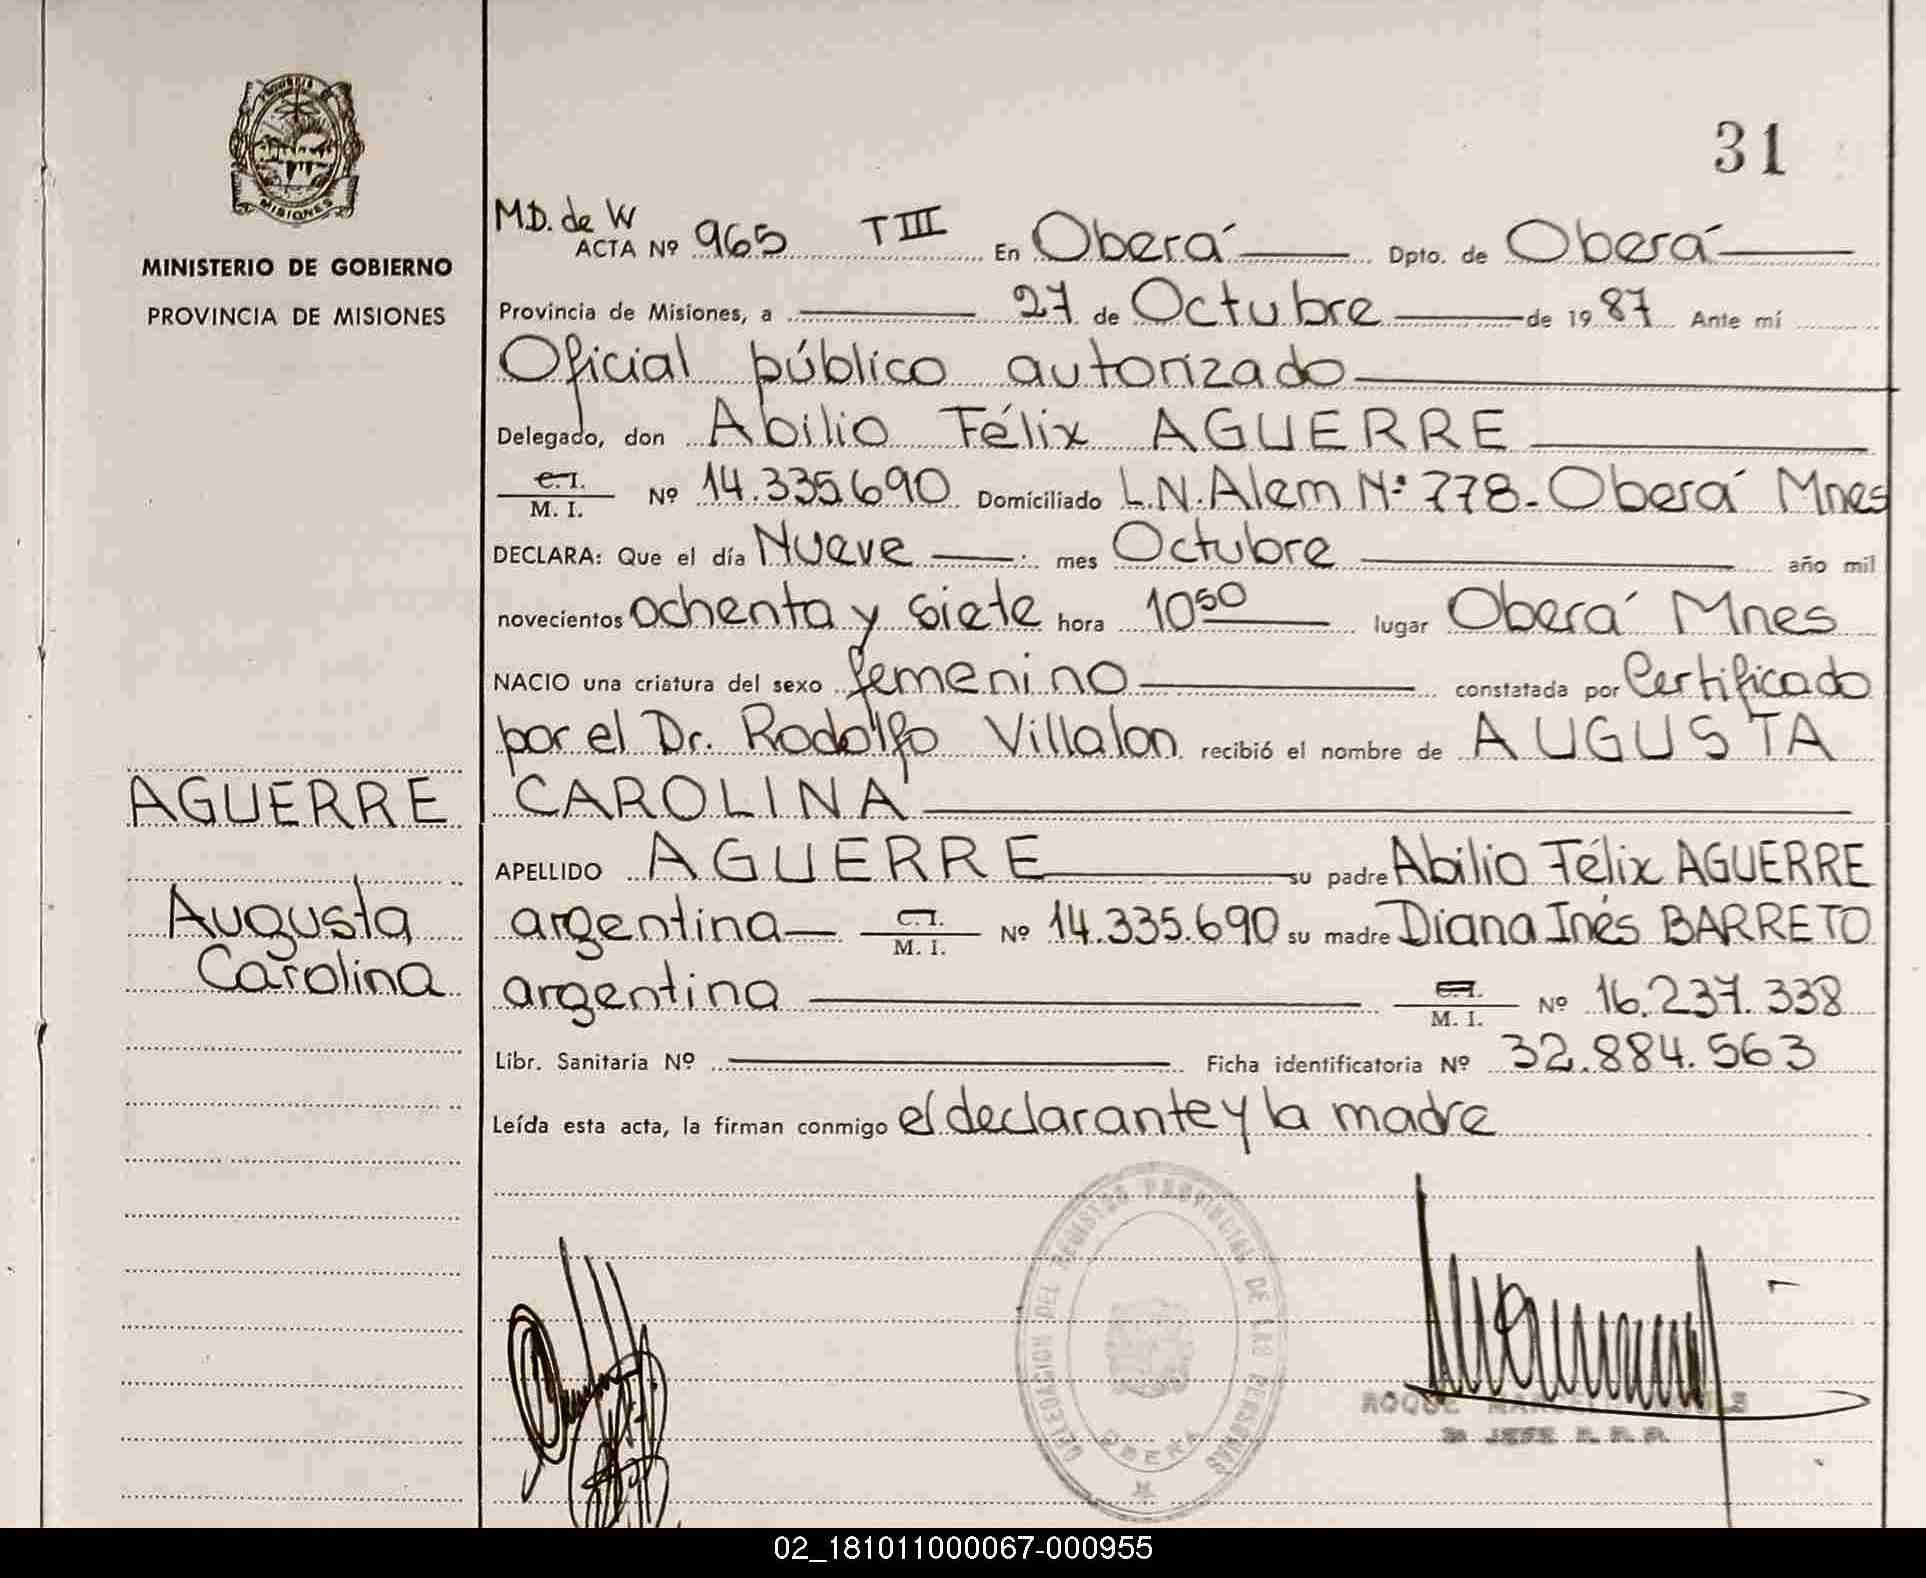 31
MISIONES
MINISTERIO DE GOBIERNO
PROVINCIA DE MISIONES
AGUERRE
Augusta
Carolina
M.D. de W
ACTA Nº 965 T III En Oberá Dpto. de Oberá
Provincia de Misiones, a 27 de Octubre de 1987 Ante mí
Oficial público autorizado
Delegado, don Abilio Félix AGUERRE
C.I.
M. I. Nº 14.335.690 Domiciliado L.N.Alem Nº 778-Oberá Mnes
DECLARA: Que el día Nueve mes Octubre año mil
novecientos ochenta y siete hora 10 50 lugar Oberá Mnes
NACIO una criatura del sexo femenino constatada por Certificado
por el Dr. Rodolfo Villalon recibió el nombre de AUGUSTA
CAROLINA
APELLIDO AGUERRE su padre Abilio Félix AGUERRE
argentina C.I. M. I. Nº 14.335.690 su madre Diana Inés BARRETO
argentina C.I. M. I. Nº 16.237.338
Libr. Sanitaria Nº Ficha identificatoria Nº 32.884.563
Leída esta acta, la firman conmigo el declarante y la madre
DELEGACION DEL REGISTRO PROVINCIAL DE LAS PERSONAS
OBERA
ROQUE
JEFE R. P. P.
02_181011000067-000955